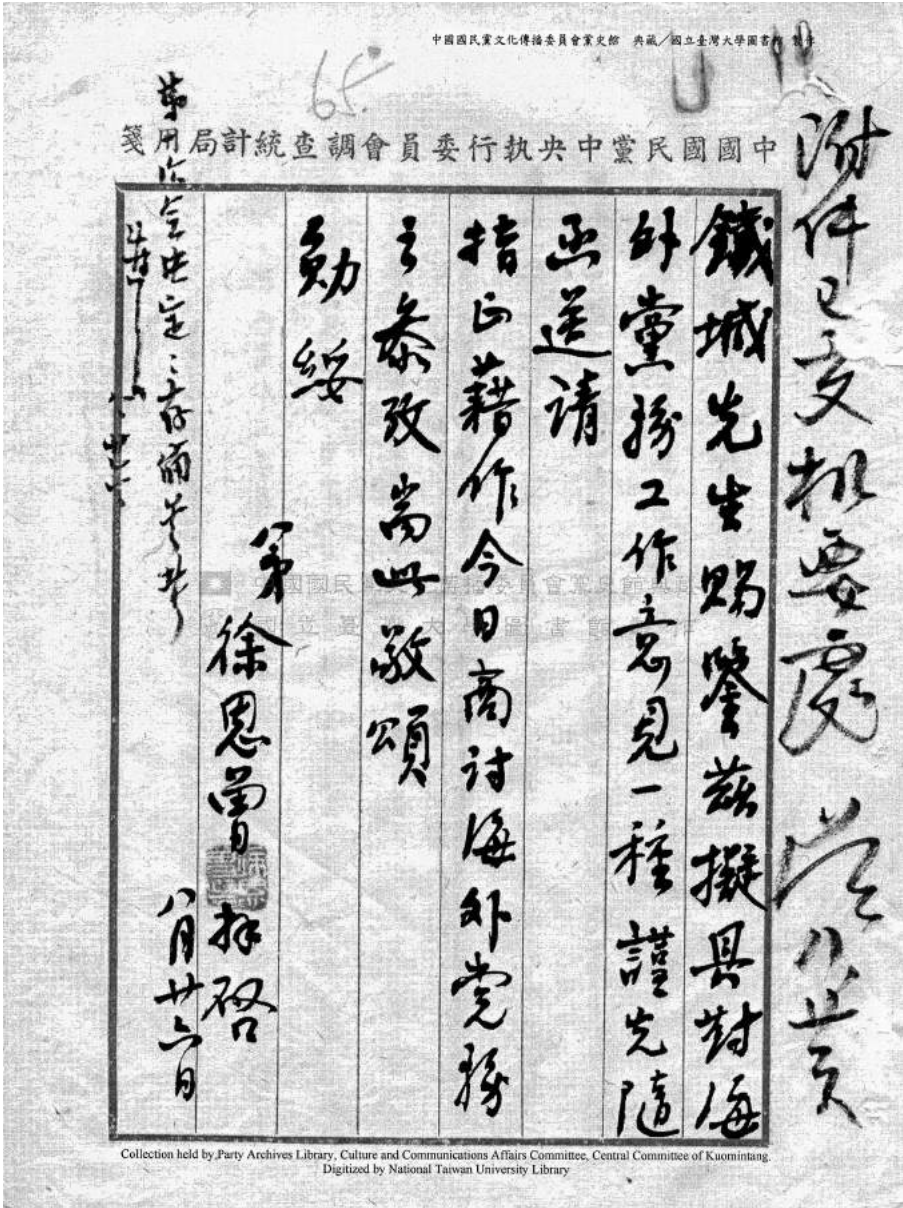 中國國民黨文化傳播委員會黨史館 典藏／國立臺灣大學圖書館 製作
65.
中國國民黨中央執行委員會調查統計局箋
附件已交机要處
鐵城先生賜鑒茲擬具對海
外黨務工作意見一種謹先隨
函送請
指正藉作今日商討海外党務
之參攷耑此敬頌
勛綏
弟徐恩曾拜啓
八月廿六日
Collection held by Party Archives Library, Culture and Communications Affairs Committee, Central Committee of Kuomintang.
Digitized by National Taiwan University Library